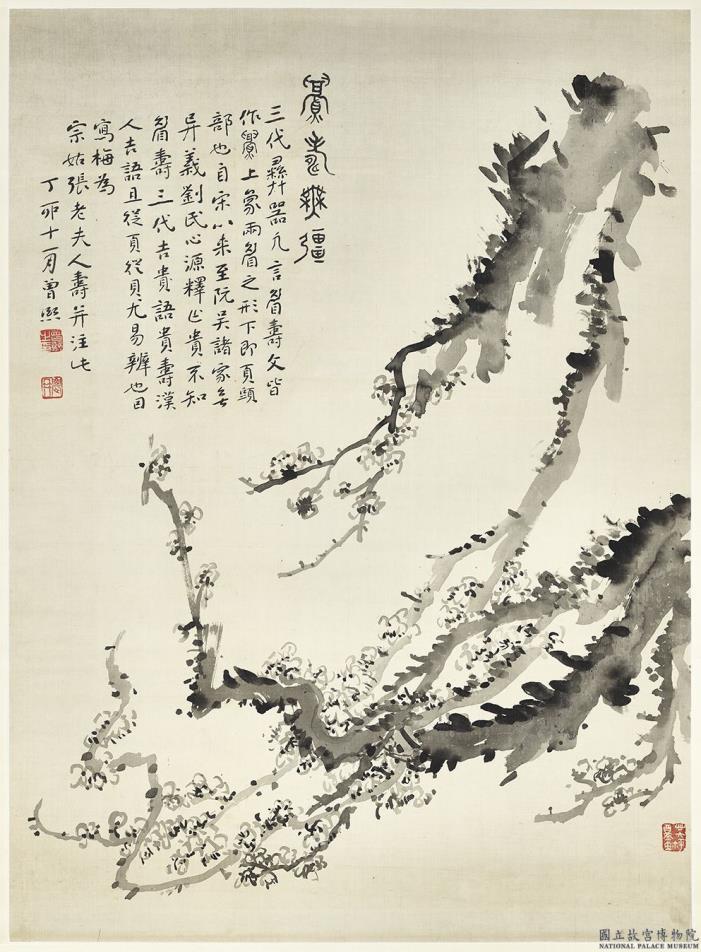 眉壽無彊
三代彝器凡言眉壽文皆
作上象兩眉之形下即頁頭
部也自宋以来至阮吳諸家無
异義劉氏心源釋作貴不知
眉壽三代吉貴語貴壽漢
人吉語且從頁從貝尤易辨也因
寫梅為
宗姑張老夫人壽并注此
丁卯十一月曾熙
國立故宮博物院
NATIONAL PALACE MUSEUM